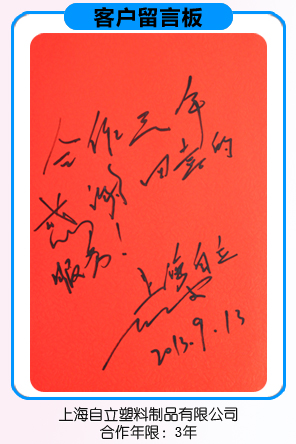 客户留言板
合作三年
感谢田喜的
服务！
上海自立
2013.9.13
上海自立塑料制品有限公司
合作年限：3年